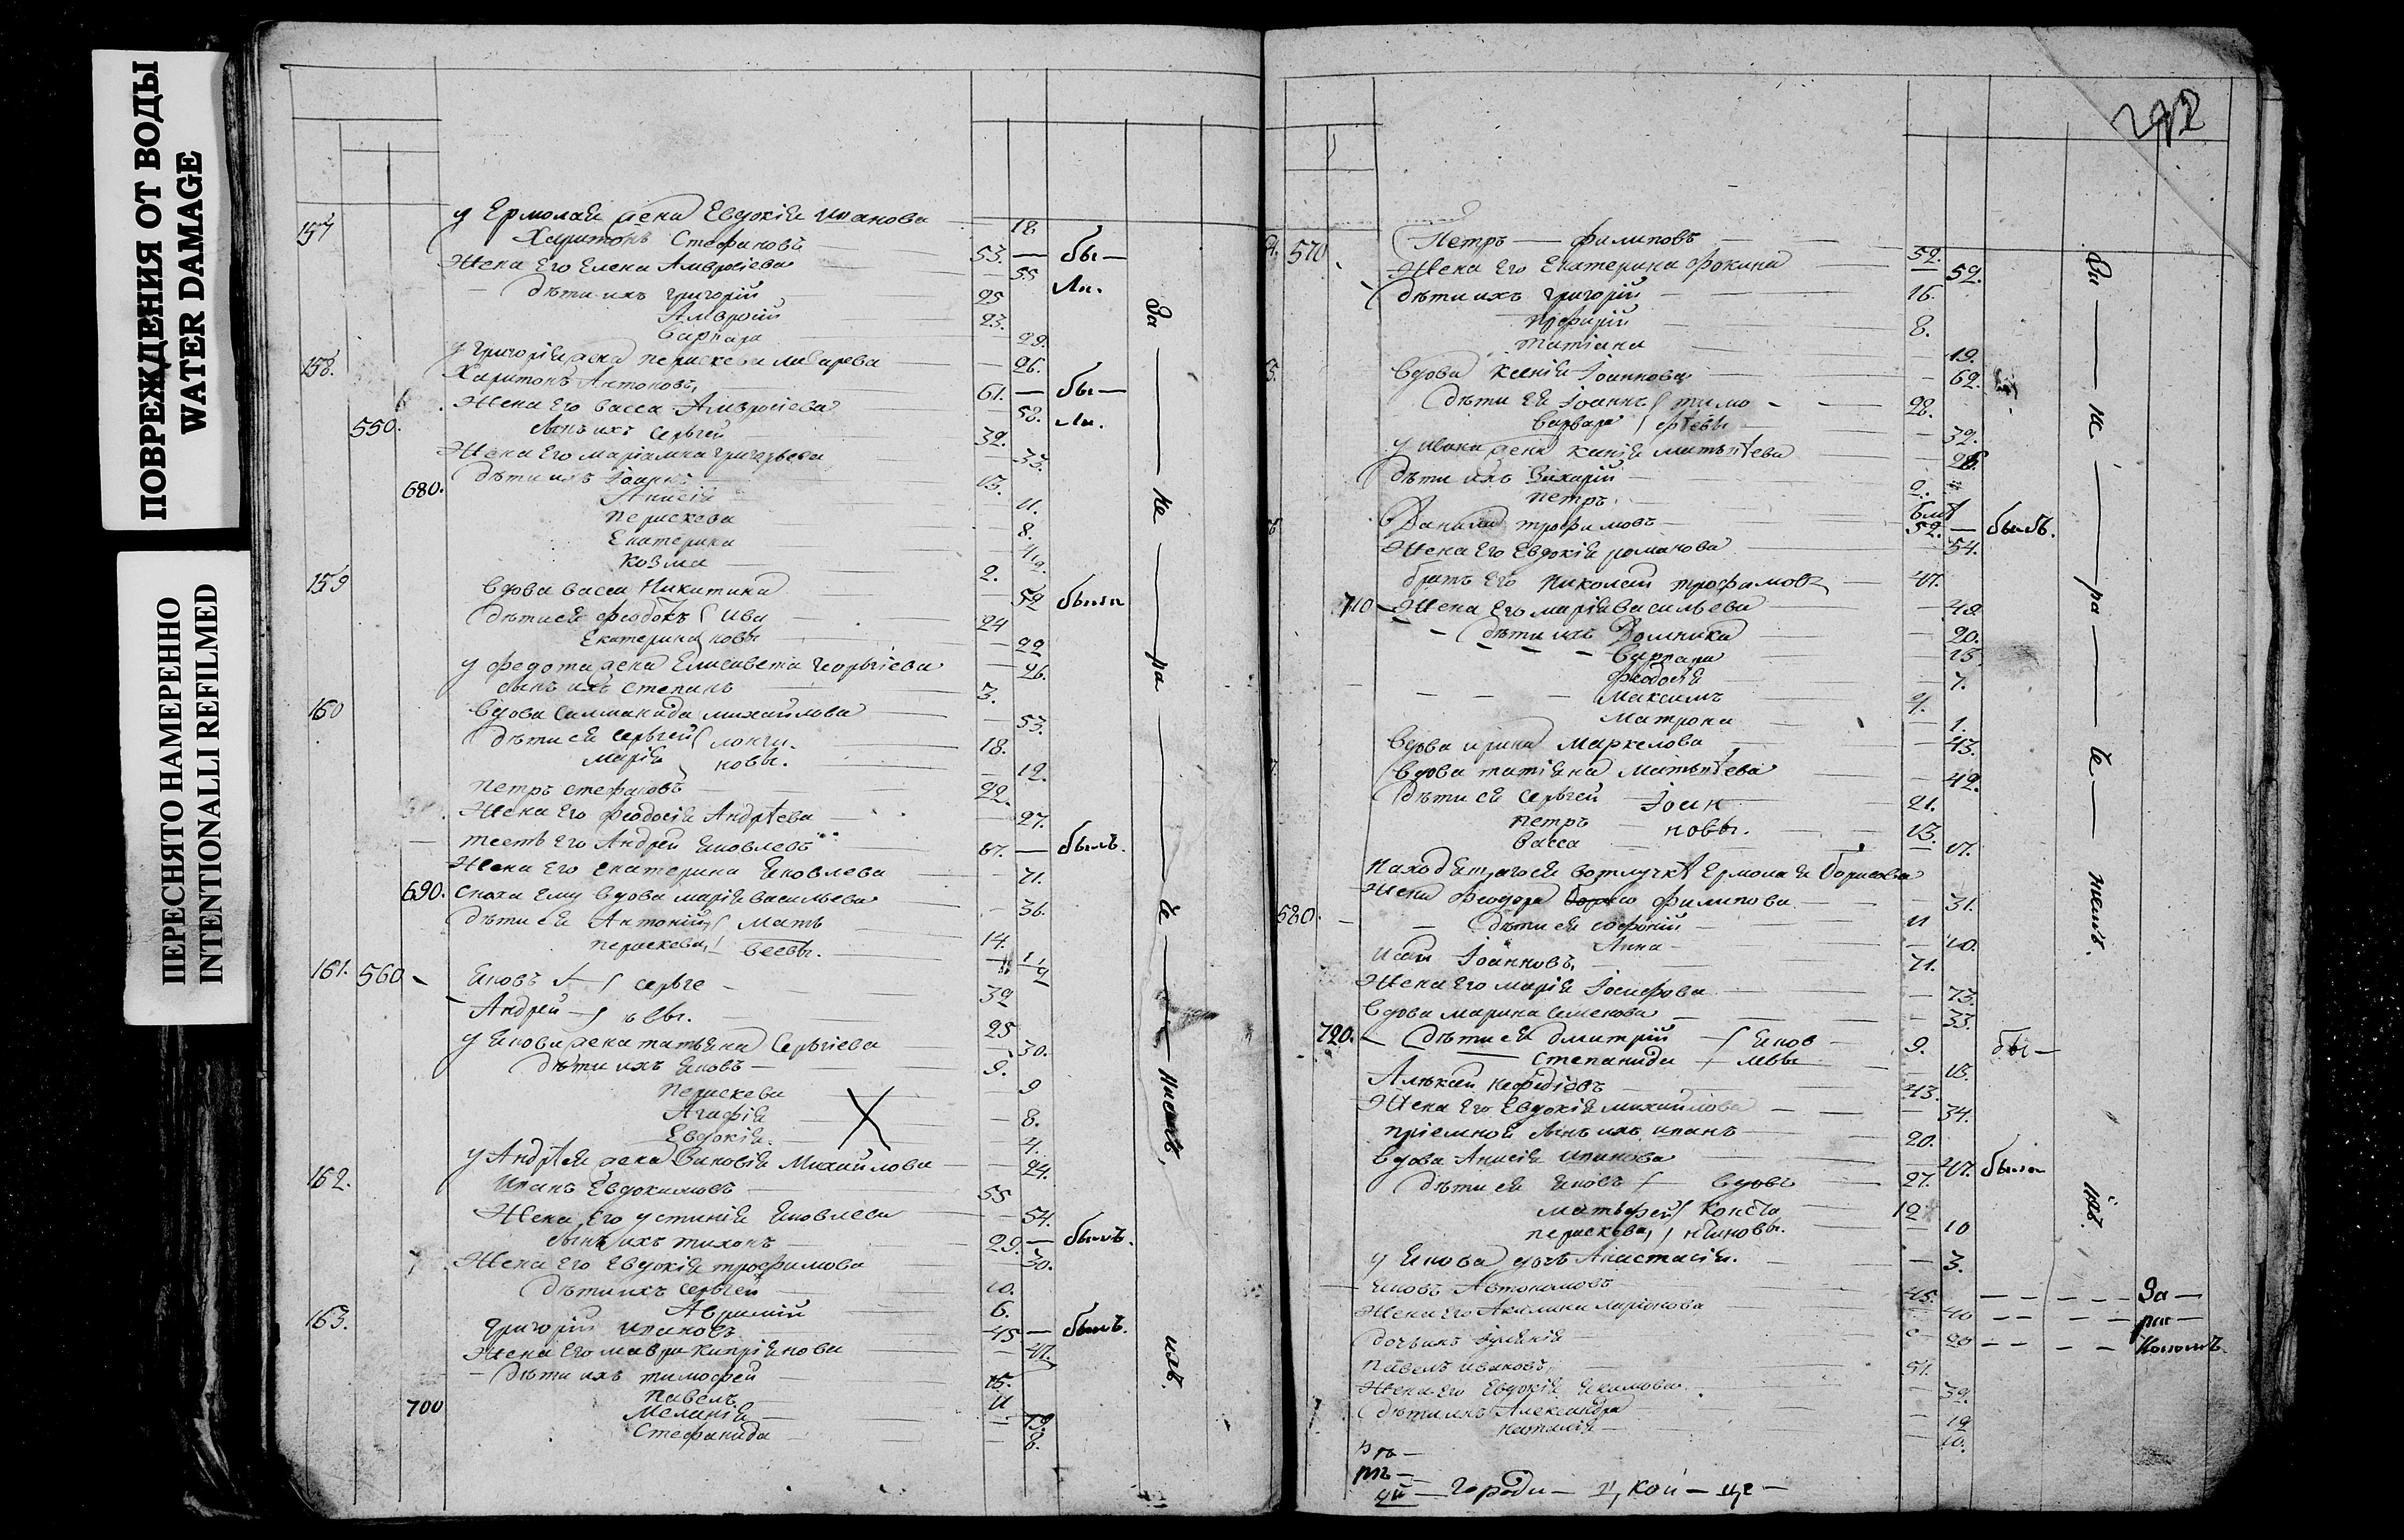 ПОВРЕЖДЕНИЯ ОТ ВОДЫ
WATER DAMAGE
ПЕРЕСНЯТО НАМЕРЕННО
INTENTIONALLI REFILMED
у Ермолая жена Евдокія Иванова — 18.
157 Харитонъ Стефановъ 53. — бы —
Жена Его Елена Амвросіева — 55 ли.
дѣти ихъ Григорій 25
Амвросій 23.
Варвара — 22.
у Григорія жена Параскева — 26.
158. Харитонъ Антоновъ 61. — бы —
Жена Его Васса Амвросіева — 58. ли.
550. сынъ ихъ Сергѣй 32.
Жена Его Маріамна Григорьева — 33.
680. дѣти ихъ Іоаннъ 13.
Анисія 11.
Параскева 8.
Екатерина
Козма 2.
159 вдова Васса Никитина — 52 были
дѣти ея Феодотъ Ива 24
Екатерина новы — 22
у Федота жена Елисавета Георгіева — 26.
сынъ ихъ Степанъ 3.
160 вдова Михайлова — 53.
дѣти ея Сергѣй Логи 18.
Марія новы. — 12.
Петръ Стефановъ 22.
Жена Его Феодосія Андрѣева — 27.
тесть Его Андрей Яковлевъ — былъ.
Жена Его Екатерина Яковлева — 71.
690. сноха ему вдова Марія Васильева — 36.
дѣти ея Антоній Матѳ 14.
Параскева, веевы.
161. 560 Яковъ Серьге 32
Андрей ѣвы. 25
у Якова жена Татьяна Сергіева — 30.
дѣти ихъ Яковъ 9.
Параскева 9
Агафія — 8.
Евдокія. — 4.
у Андрѣя жена Зиновія Михайлова — 24.
162. Иванъ Евдокимовъ 55
Жена Его Устинія Яковлева — 54.
сынъ ихъ Тихонъ 29. — былъ.
Жена Его Евдокія Трофимова 30.
дѣти ихъ Сергѣй 10.
Авраамій 6.
163. Григорій Ивановъ 45 — былъ.
Жена Его Мавра Кипріянова — 47.
дѣти ихъ Тимофей 15.
700 Павелъ 11
Меланія — 19.
Стефанида — 8.
За — не — ра — че — ніемъ, ихъ.
292
570 Петръ — Филиповъ 52.
Жена Его Екатерина Фокина — 52.
дѣти ихъ Григорій 16.
8.
Татіана — 19.
вдова Ксенія Іоаннова — 62.
дѣти ея Іоаннъ Тимо 28.
Варвара фѣевы — 32.
у Ивана жена Ксенія Матвѣева
дѣти ихъ Захарій 2.
Петръ.
Данила Трофимовъ 52. — былъ.
Жена Его Евдокія Романова — 54.
братъ Его Николай Трофимовъ 47.
710 Жена Его Марія Васильева — 48
дѣти ихъ Домника — 20.
Варвара — 15.
Феодосія — 7.
Максимъ 4.
Матрона — 1.
вдова Ирина Маркелова — 43.
вдова Татіяна Матвѣева — 42.
дѣти ея Сергѣй Іоан 21.
Петръ новы. 13.
Васса — 17.
Находящагося вотлучкѣ Ермолая Борисова
Жена Феодора Филипова — 31.
580. дѣти ея Софроній 11
Анна — 10.
Исай Іоанновъ, 71.
Жена Его Марія Іосифова — 73.
вдова Марина Семенова — 33.
720. дѣти ея Дмитрій Яков 9. бы —
Степанида лѣвы — 13.
Алексѣй 43.
Жена Его Евдокія Михайлова — 34.
пріемной сынъ ихъ Иванъ 20.
вдова Анисія Иванова — 47. была
дѣти ея Яковъ 27.
Матьфей Конста 12
Параскева, нтиновы. — 10
у Якова дочь Анастасія. — 3.
Яковъ Автономовъ 45. За —
Жена Его Акилина Ларіонова — 40 рас —
дочь ихъ — 20
Павелъ Ивановъ 51.
Жена Его Евдокія Якимова. — 39.
дѣти ихъ Александра — 12
Наталія — 10.
городи — ц, кой — це —
За — не — ра — че — ніемъ. ихъ.